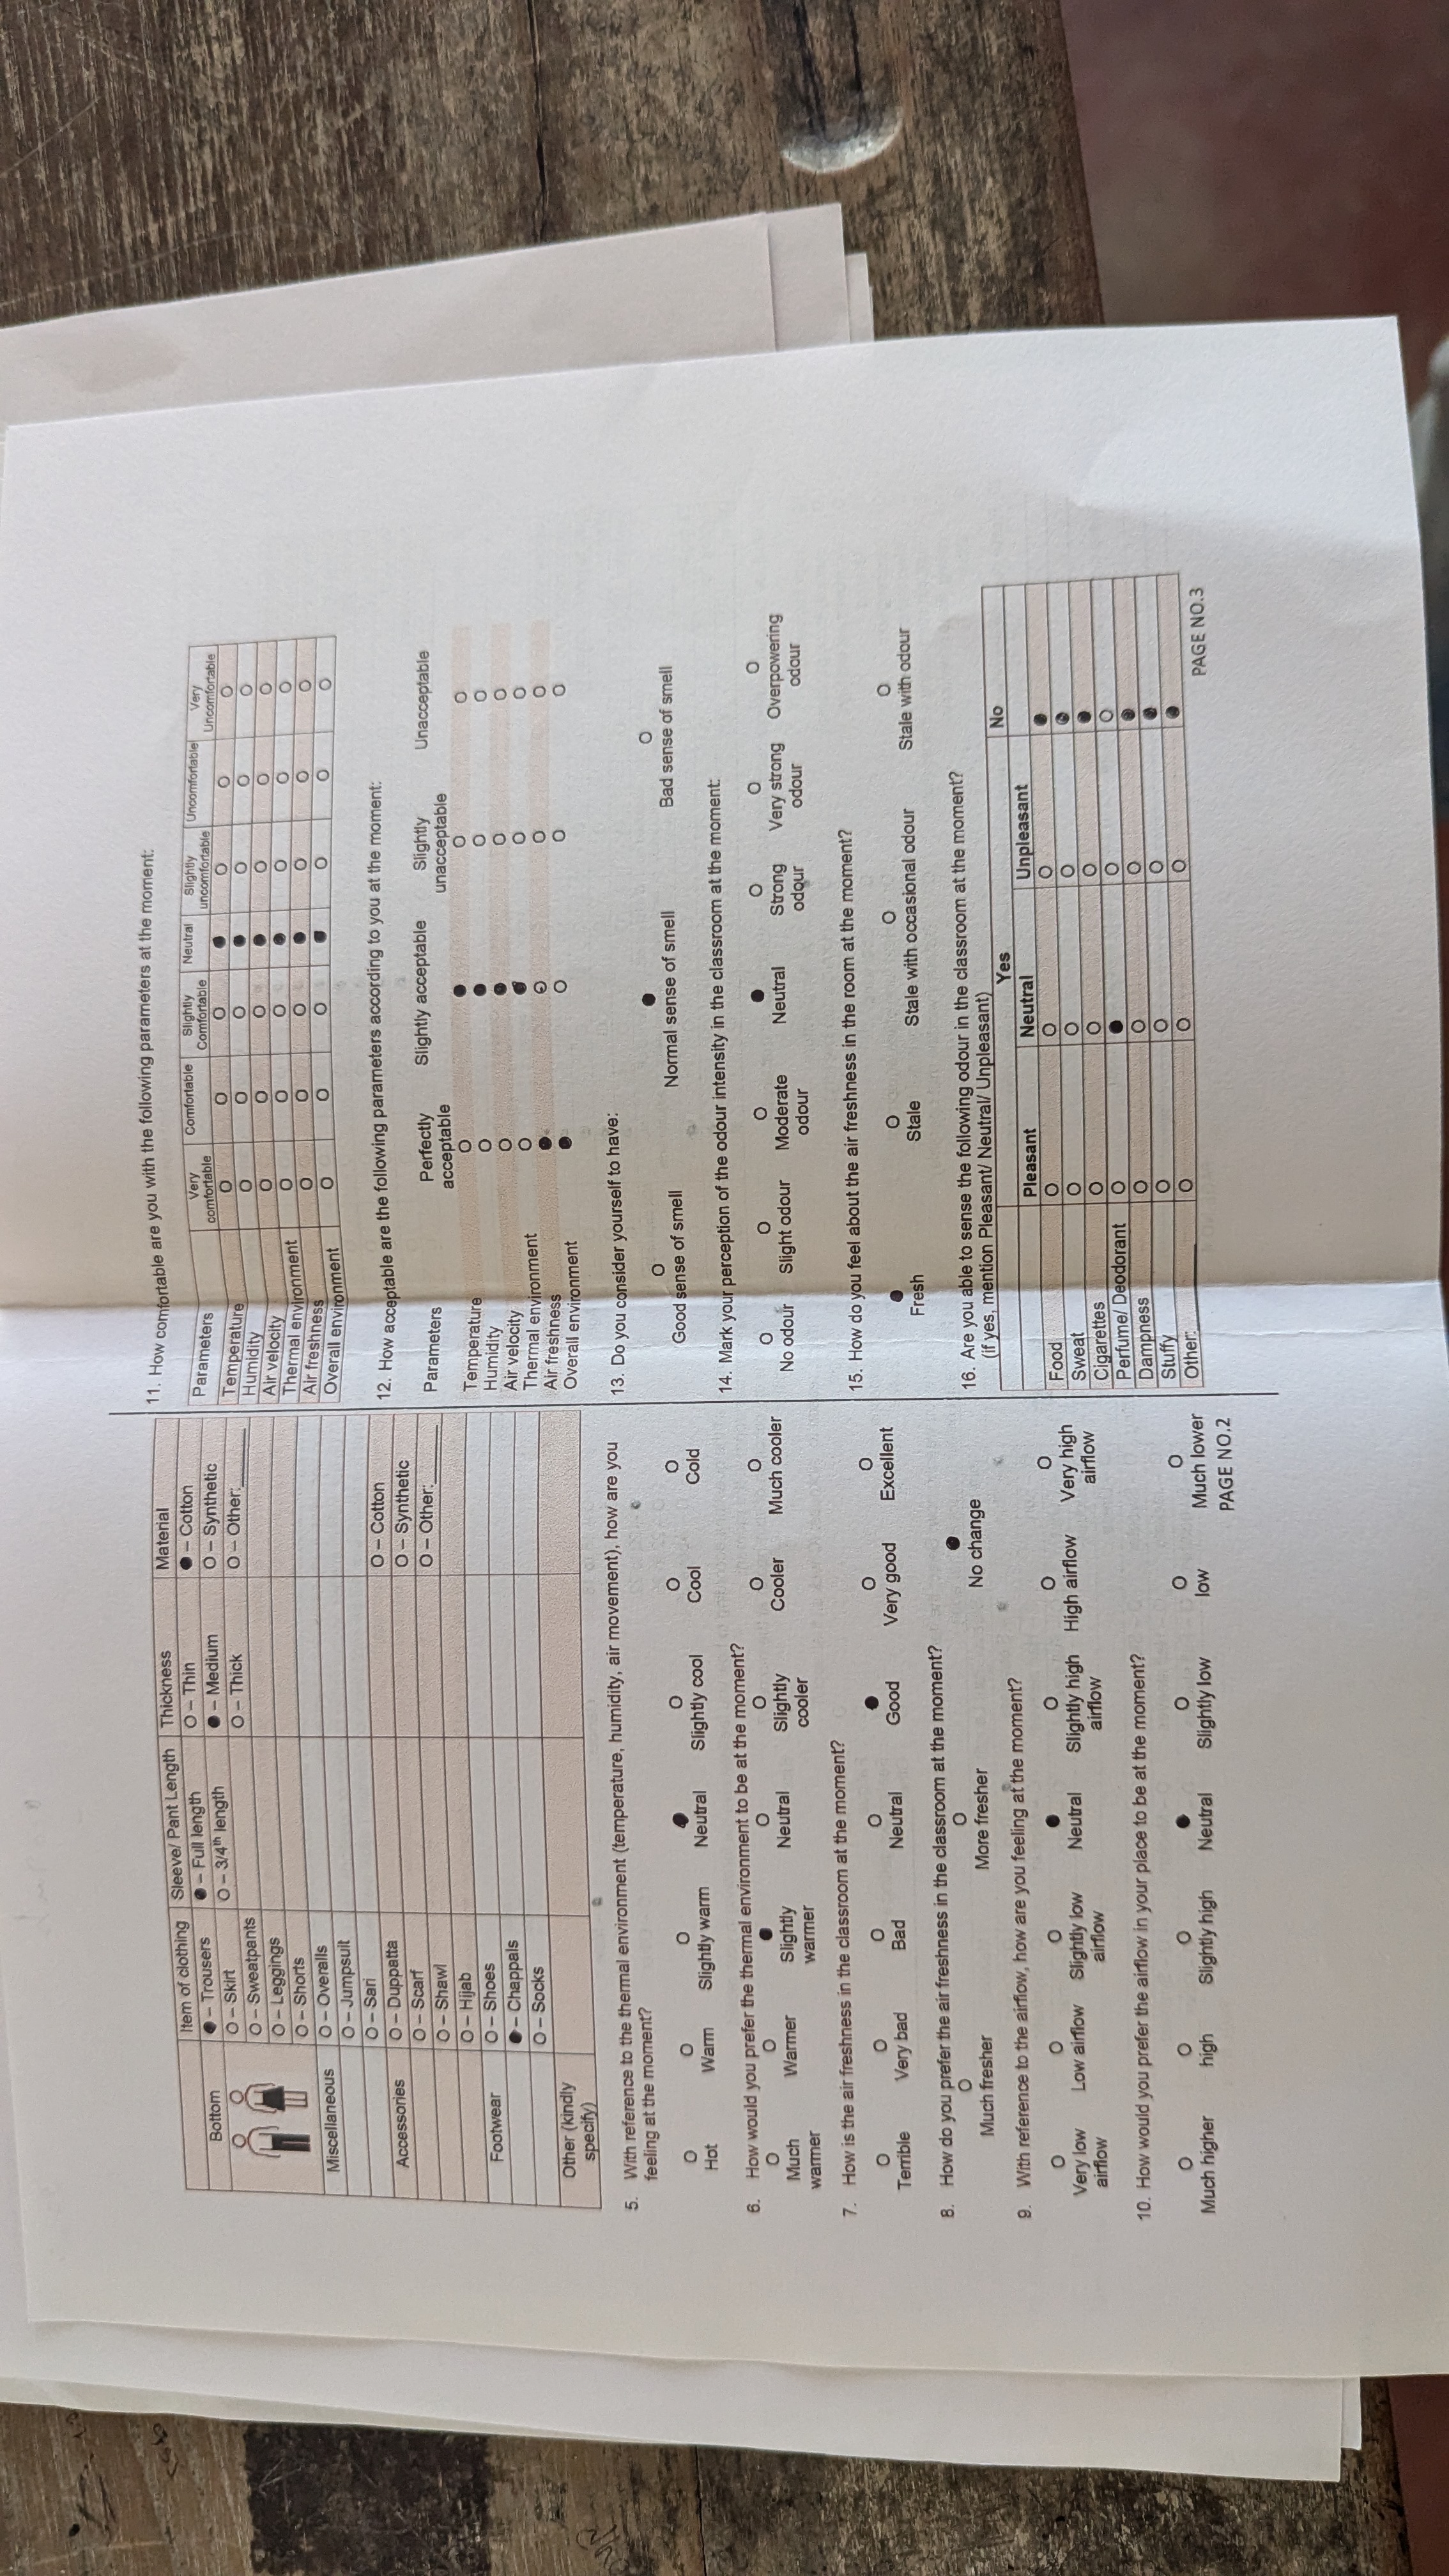 Item of clothing Sleeve/ Pant Length Thickness Material
Bottom ● – Trousers ● – Full length O – Thin ● – Cotton
O – Skirt O – 3/4th length ● – Medium O – Synthetic
O – Sweatpants O – Thick O – Other:______
O – Leggings
O – Shorts
Miscellaneous O – Overalls
O – Jumpsuit
O – Sari
Accessories O – Duppatta O – Cotton
O – Scarf O – Synthetic
O – Shawl O – Other:______
O – Hijab
Footwear O – Shoes
● – Chappals
O – Socks
Other (kindly
specify)
5. With reference to the thermal environment (temperature, humidity, air movement), how are you
feeling at the moment?
O O O ● O O O
Hot Warm Slightly warm Neutral Slightly cool Cool Cold
6. How would you prefer the thermal environment to be at the moment?
O O ● O O O O
Much Warmer Slightly Neutral Slightly Cooler Much cooler
warmer warmer cooler
7. How is the air freshness in the classroom at the moment?
O O O O ● O O
Terrible Very bad Bad Neutral Good Very good Excellent
8. How do you prefer the air freshness in the classroom at the moment?
O O ●
Much fresher More fresher No change
9. With reference to the airflow, how are you feeling at the moment?
O O O ● O O O
Very low Low airflow Slightly low Neutral Slightly high High airflow Very high
airflow airflow airflow airflow
10. How would you prefer the airflow in your place to be at the moment?
O O O ● O O O
Much higher high Slightly high Neutral Slightly low low Much lower
PAGE NO.2
11. How comfortable are you with the following parameters at the moment:
Parameters Very Comfortable Slightly Neutral Slightly Uncomfortable Very
comfortable Comfortable uncomfortable Uncomfortable
Temperature O O O ● O O O
Humidity O O O ● O O O
Air velocity O O O ● O O O
Thermal environment O O O ● O O O
Air freshness O O O ● O O O
Overall environment O O O ● O O O
12. How acceptable are the following parameters according to you at the moment:
Parameters Perfectly Slightly acceptable Slightly Unacceptable
acceptable unacceptable
Temperature O ● O O
Humidity O ● O O
Air velocity O ● O O
Thermal environment O ● O O
Air freshness ● O O O
Overall environment ● O O O
13. Do you consider yourself to have:
O ● O
Good sense of smell Normal sense of smell Bad sense of smell
14. Mark your perception of the odour intensity in the classroom at the moment:
O O O ● O O O
No odour Slight odour Moderate Neutral Strong Very strong Overpowering
odour odour odour odour
15. How do you feel about the air freshness in the room at the moment?
● O O O
Fresh Stale Stale with occasional odour Stale with odour
16. Are you able to sense the following odour in the classroom at the moment?
(if yes, mention Pleasant/ Neutral/ Unpleasant)
Yes No
Pleasant Neutral Unpleasant
Food O O O ●
Sweat O O O ●
Cigarettes O O O ●
Perfume/ Deodorant O ● O O
Dampness O O O ●
Stuffy O O O ●
Other:________ O O O ●
PAGE NO.3